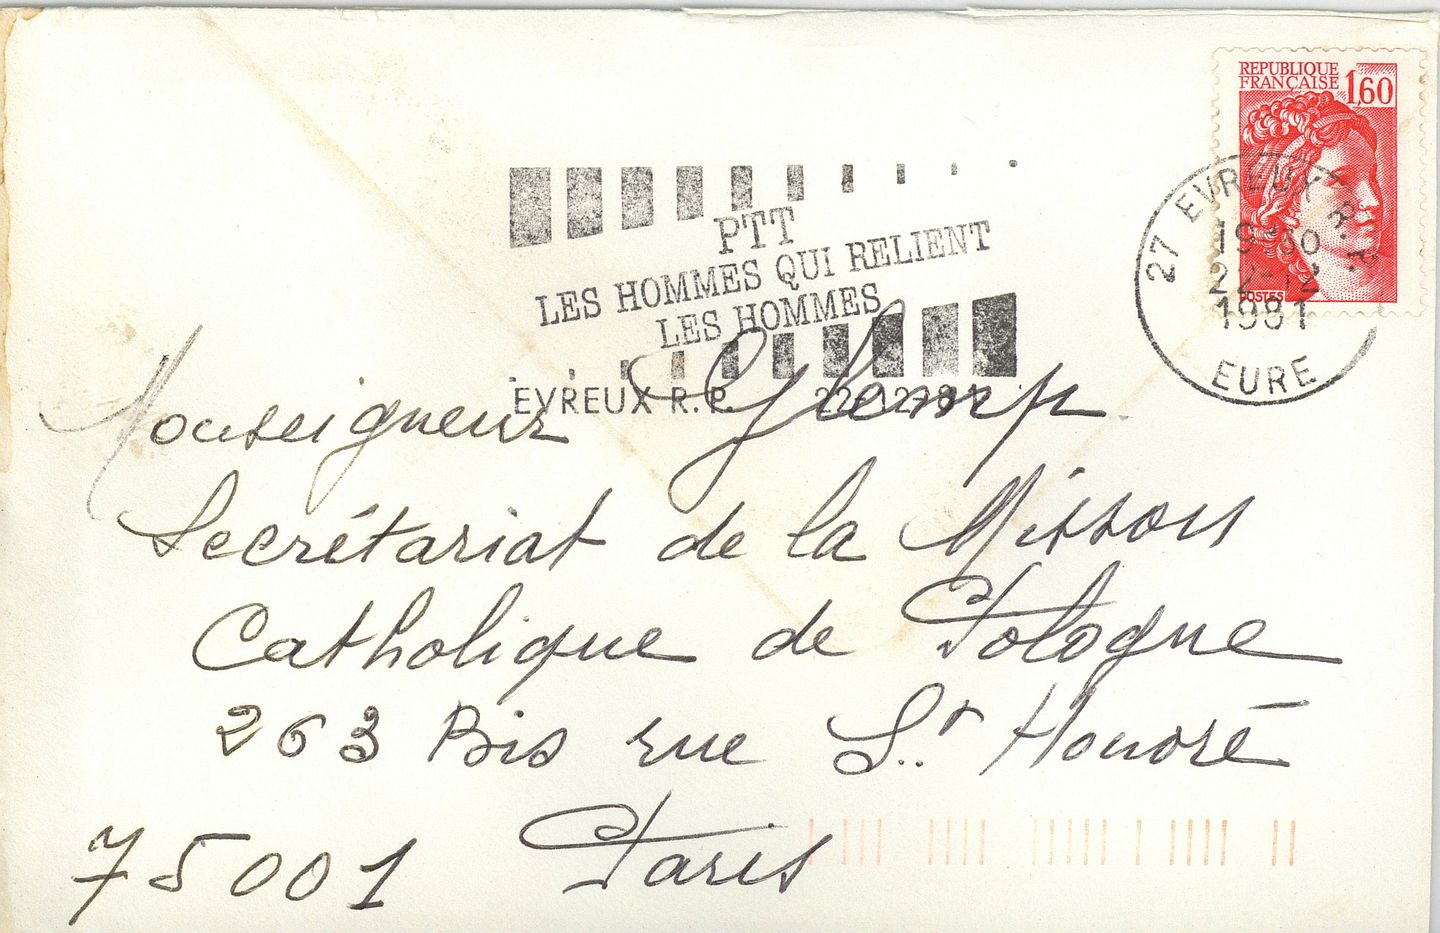 REPUBLIQUE
FRANÇAISE
1,60
POSTES
27 EVREUX R.P.
19-30
22-12
1981
EURE
PTT
LES HOMMES QUI RELIENT
LES HOMMES
EVREUX R.P. 22-12-81
Monseigneur Glemp
Secrétariat de la Misson
Catholique de Pologne
263 Bis rue St Honoré
75001 Paris